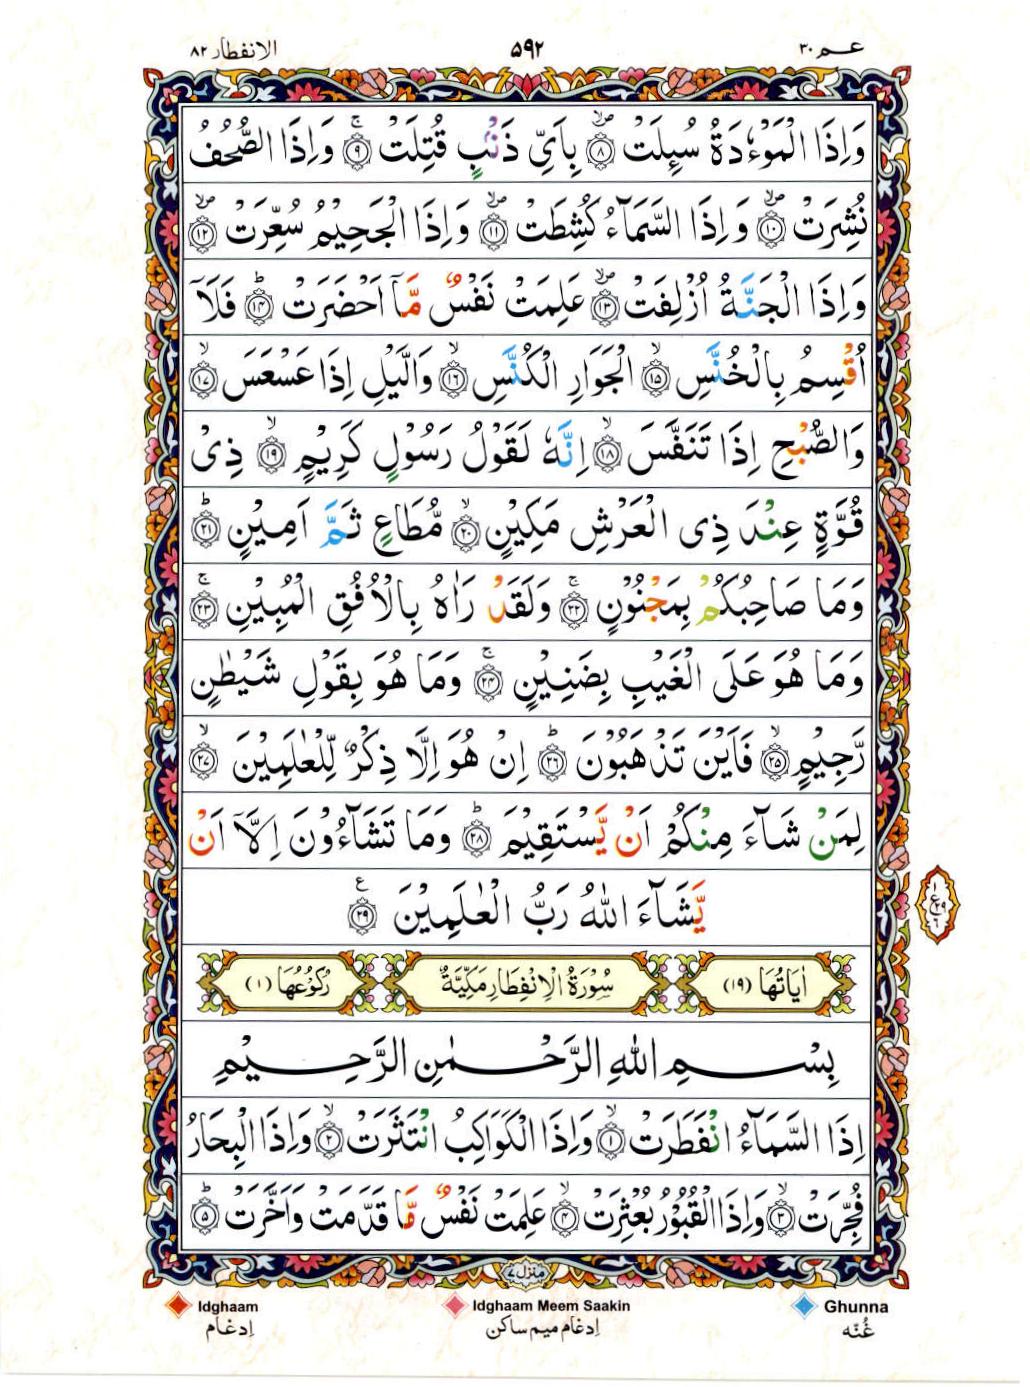 عـم ٣٠ ۵۹۲ الانفطار ٨٢
وَاِذَا الْمَوْءٗدَةُ سُئِلَتْ ۪ۙۙ‏ ﴿۸﴾ بِاَىِّ ذَنْۢبٍ قُتِلَتْ​ۚ ﴿۹﴾ وَاِذَا الصُّحُفُ
نُشِرَتْ ۪ۙۙ‏ ﴿۱۰﴾ وَاِذَا السَّمَآءُ كُشِطَتْ ۪ۙۙ‏ ﴿۱۱﴾ وَاِذَا الْجَحِيْمُ سُعِّرَتْ ۪ۙۙ‏ ﴿۱۲﴾
وَاِذَا الْجَنَّةُ اُزْلِفَتْ ۪ۙۙ‏ ﴿۱۳﴾ عَلِمَتْ نَفْسٌ مَّاۤ اَحْضَرَتْؕ‏ ﴿۱۴﴾ فَلَاۤ
اُقْسِمُ بِالْخُنَّسِۙ‏ ﴿۱۵﴾ الْجَوَارِ الْكُنَّسِۙ‏ ﴿۱۶﴾ وَالَّيْلِ اِذَا عَسْعَسَۙ‏ ﴿۱۷﴾
وَالصُّبْحِ اِذَا تَنَفَّسَۙ‏ ﴿۱۸﴾ اِنَّهٗ لَقَوْلُ رَسُوْلٍ كَرِيْمٍۙ‏ ﴿۱۹﴾ ذِىْ
قُوَّةٍ عِنْدَ ذِى الْعَرْشِ مَكِيْنٍۙ‏ ﴿۲۰﴾ مُّطَاعٍ ثَمَّ اَمِيْنٍؕ‏ ﴿۲۱﴾
وَمَا صَاحِبُكُمْ بِمَجْنُوْنٍۚ‏ ﴿۲۲﴾ وَلَقَدْ رَاٰهُ بِالْاُفُقِ الْمُبِيْنِۚ‏ ﴿۲۳﴾
وَمَا هُوَ عَلَى الْغَيْبِ بِضَنِيْنٍۚ‏ ﴿۲۴﴾ وَمَا هُوَ بِقَوْلِ شَيْطٰنٍ
رَّجِيْمٍۙ‏ ﴿۲۵﴾ فَاَيْنَ تَذْهَبُوْنَؕ‏ ﴿۲۶﴾ اِنْ هُوَ اِلَّا ذِكْرٌ لِّلْعٰلَمِيْنَۙ‏ ﴿۲۷﴾
لِمَنْ شَآءَ مِنْكُمْ اَنْ يَّسْتَقِيْمَؕ‏ ﴿۲۸﴾ وَمَا تَشَآءُوْنَ اِلَّاۤ اَنْ
يَّشَآءَ اللّٰهُ رَبُّ الْعٰلَمِيْنَ ﴿۲۹﴾ ع
اٰيَاتُهَا (١٩) سُوْرَةُ الْاِنْفِطَارِ مَكِّيَّةٌ رُكُوْعُهَا (١)
بِسْمِ اللّٰهِ الرَّحْمٰنِ الرَّحِيْمِ
اِذَا السَّمَآءُ انْفَطَرَتْۙ‏ ﴿۱﴾ وَاِذَا الْكَوَاكِبُ انْتَثَرَتْۙ‏ ﴿۲﴾ وَاِذَا الْبِحَارُ
فُجِّرَتْۙ‏ ﴿۳﴾ وَاِذَا الْقُبُوْرُ بُعْثِرَتْۙ‏ ﴿۴﴾ عَلِمَتْ نَفْسٌ مَّا قَدَّمَتْ وَاَخَّرَتْؕ‏ ﴿۵﴾
منزل ٧
Idghaam Idghaam Meem Saakin Ghunna
اِدغَام اِدغَام ميم ساكن غُنّه